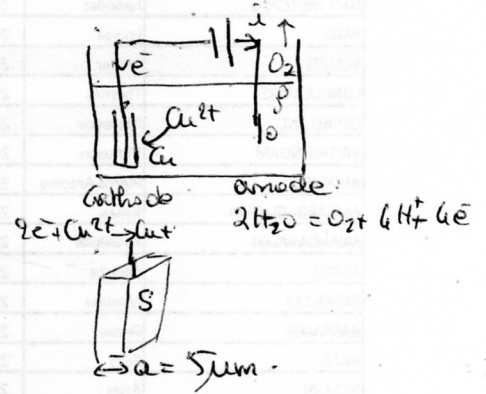 i
e⁻
O₂
Cu²⁺
Cu
Cathode
anode.
2e⁻+Cu²⁺→Cu+
2H₂O = O₂+ 4H⁺+ 4e⁻
S
a = 5µm.